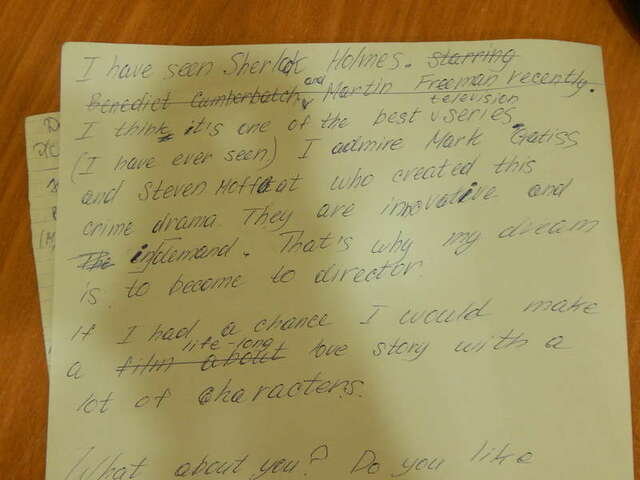 I have seen Sherlock Holmes. starring
Benedict Cumberbatch and Martin Freeman recently.
I think it's one of the best television series
(I have ever seen) I admire Mark Gatiss
and Steven Moffat who created this
crime drama. They are innovative and
The in demand. That's why my dream
is to become to director.
If I had a chance I would make
a film about life-long love story with a
lot of characters.
What about you? Do you like